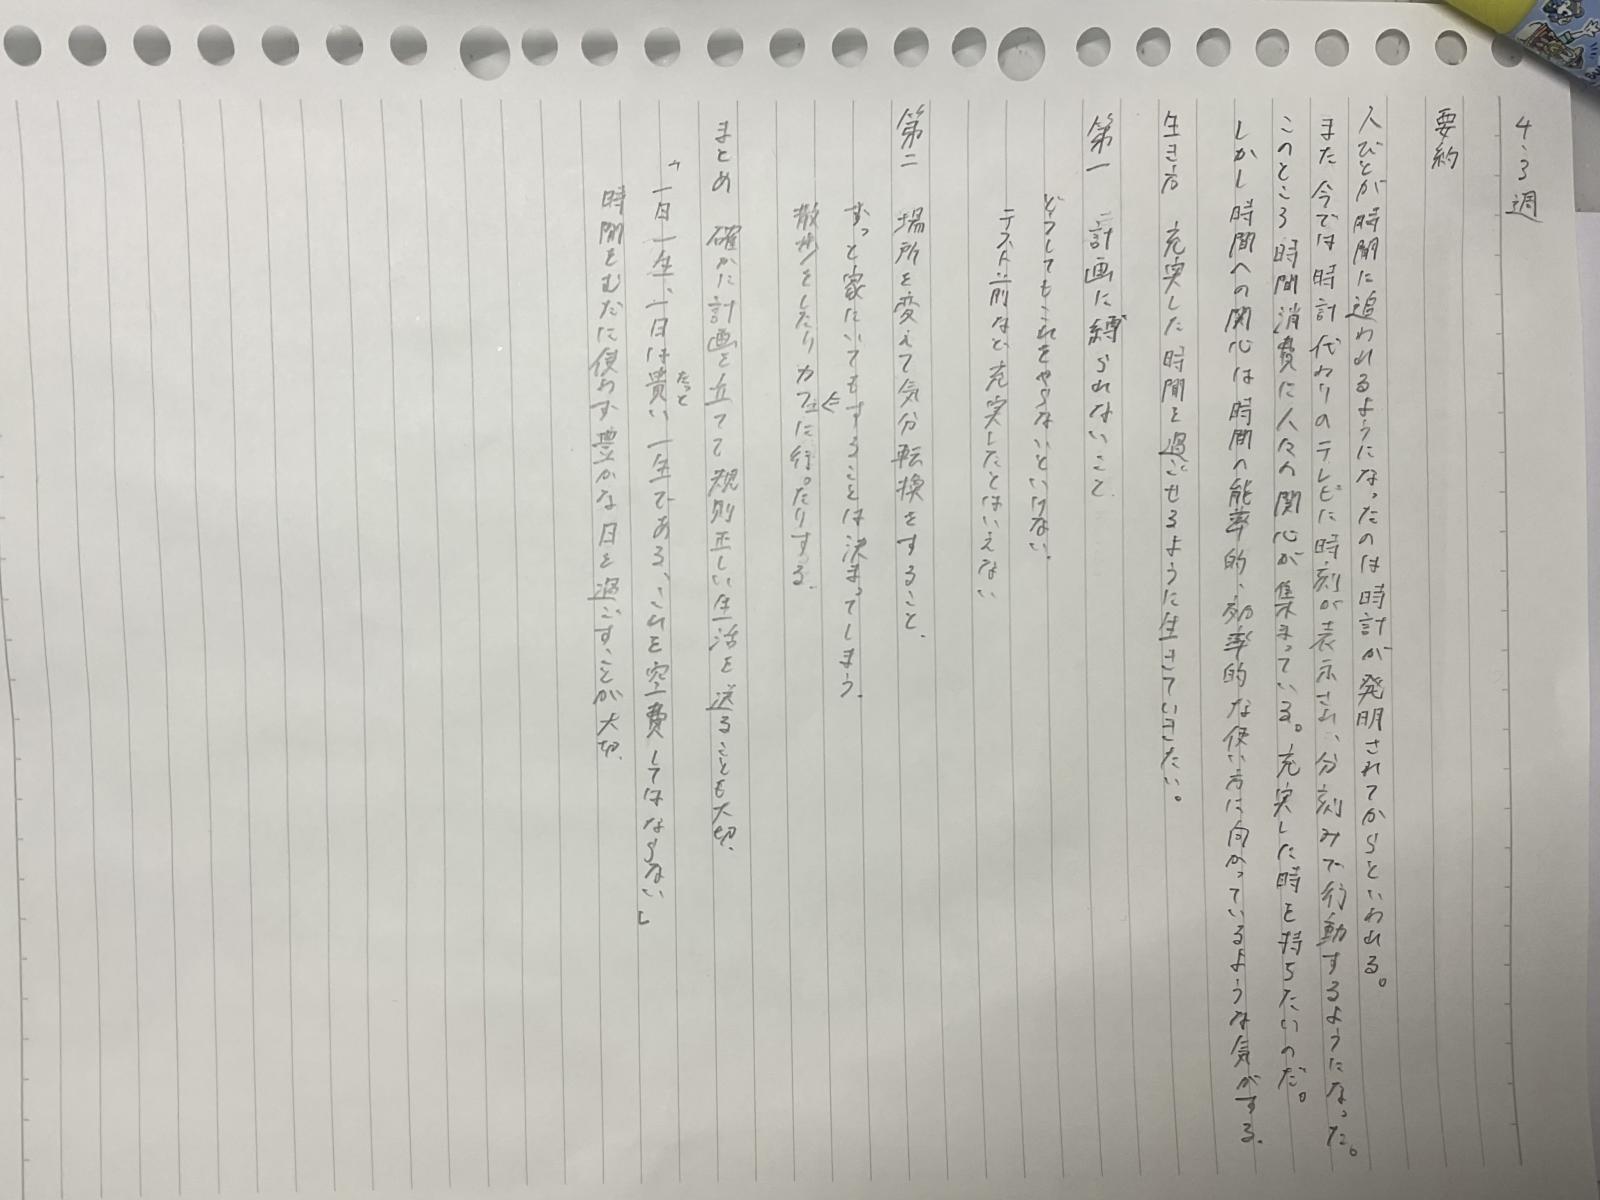 4.3週
要約
人びとが時間に追われるようになったのは時計が発明されてからといわれる。
また今では時計代わりのテレビに時刻が表示され、分刻みで行動するようになった。
このところ時間消費に人々の関心が集まっている。充実した時を持ちたいのだ。
しかし時間への関心は時間の能率的、効率的な使い方に向かっているような気がする.
生き方 充実した時間を過ごせるように生きていきたい。
第一 計画に縛られないこと.
どうしてもこれをやらないといけない.
テスト前など充実したとはいえない
第二 場所を変えて気分転換をすること.
ずっと家にいてもすることは決まってしまう.
散歩をしたりカフェに行ったりする.
まとめ 確かに計画を立てて規則正しい生活を送ることも大切.
「一日一生、一日は貴い一生である、これを空費してはならない」
たっと
時間をむだに使わず豊かな日を過ごすことが大切.